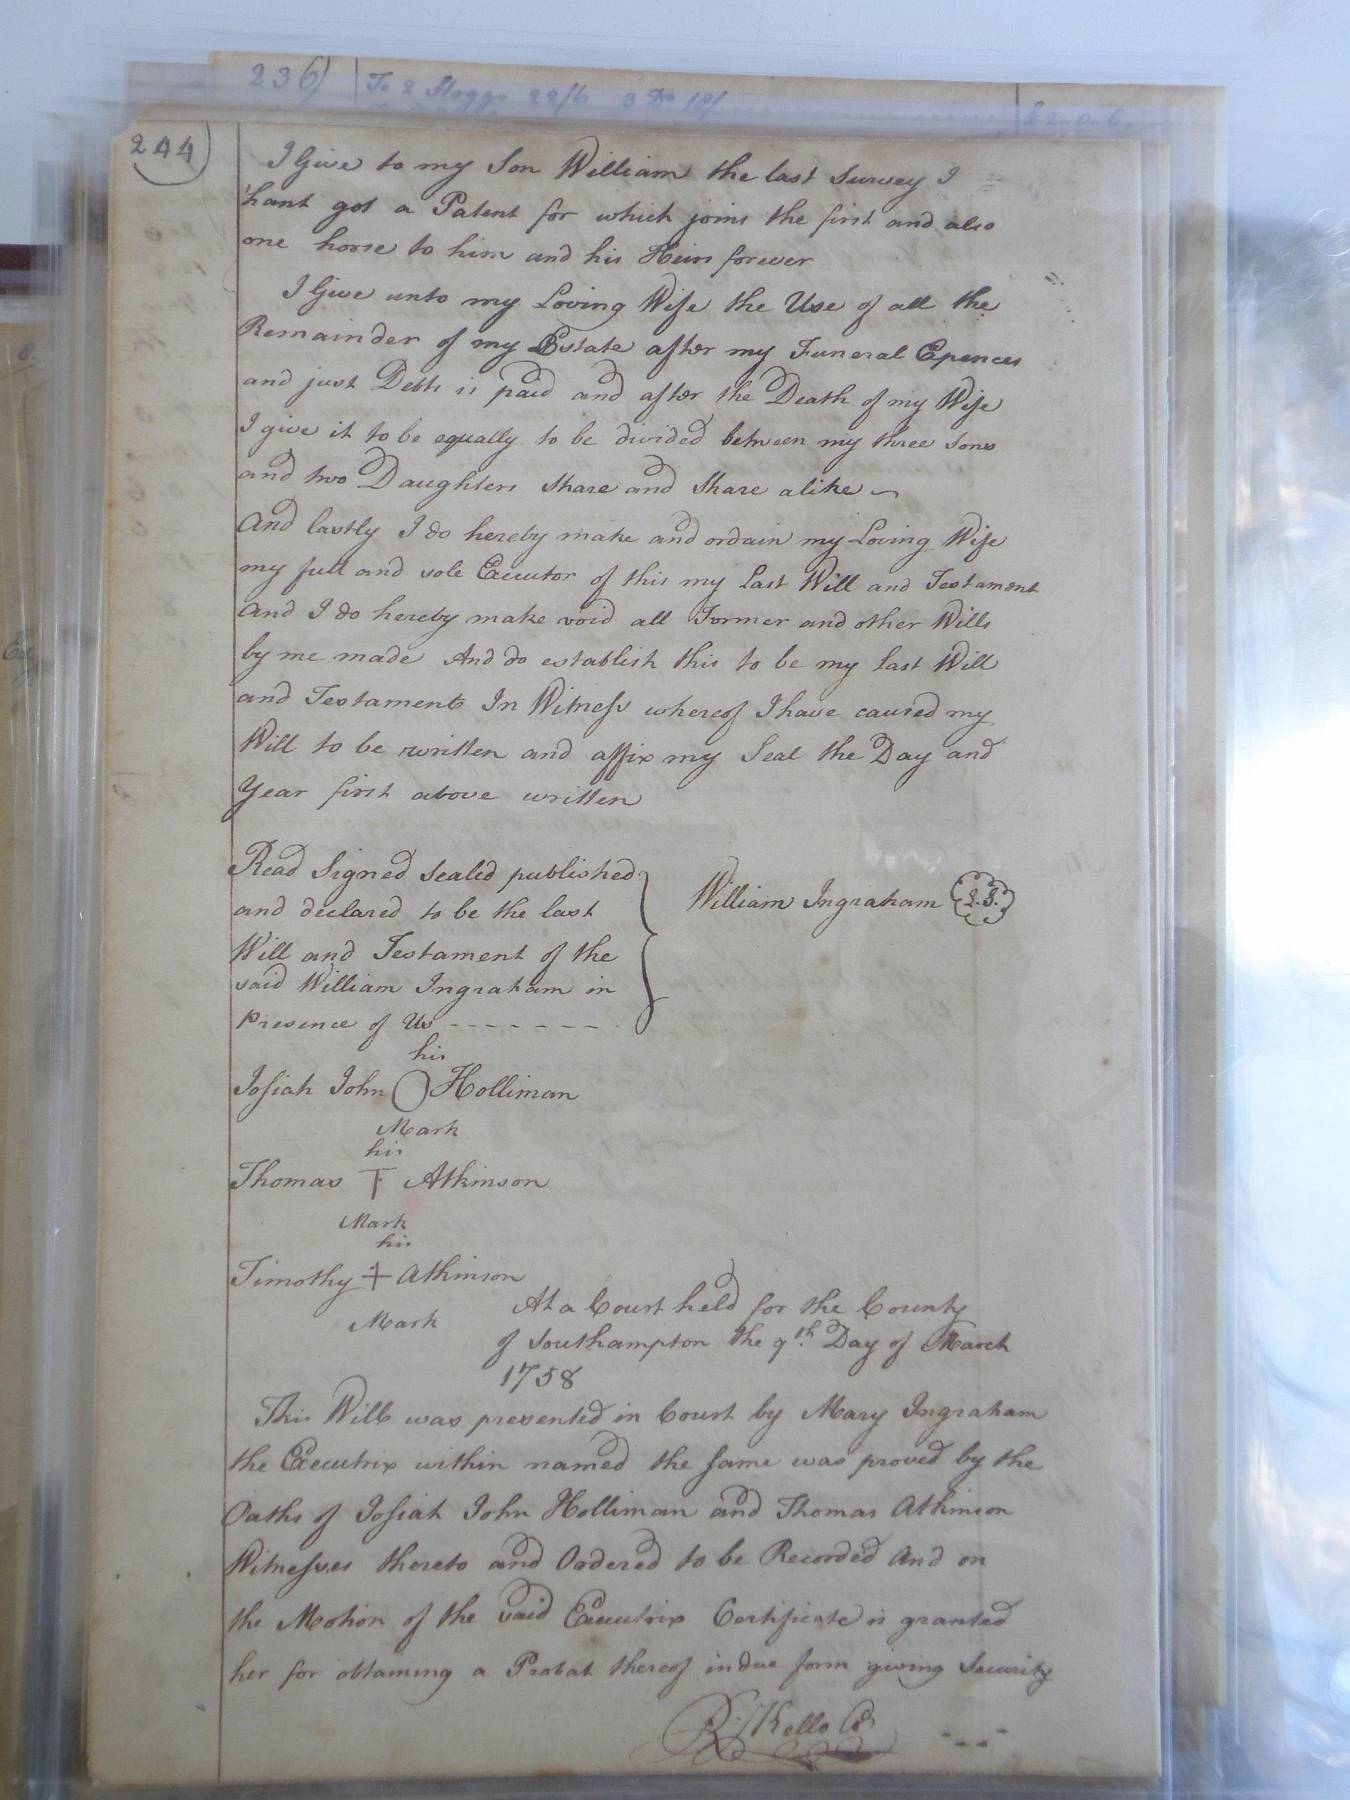 236) To 2 Hoggs 22/6 3 Do 18/
244
I Give to my Son William the last Survey I
hant got a Patent for which joins the first and also
one horse to him and his Heirs forever
I Give unto my Loving Wife the Use of all the
Remainder of my Estate after my Funeral Epences
and just Debts is paid and after the Death of my Wife
I give it to be equally to be divided between my three sons
and two Daughters Share and Share alike
And lastly I do hereby make and ordain my Loving Wife
my full and sole Executor of this my Last Will and Testament
And I do hereby make void all Former and other Wills
by me made And do establish this to be my last Will
and Testament In Witness whereof I have caused my
Will to be written and affix my Seal the Day and
Year first above written
Read Signed Sealed published
and declared to be the last
Will and Testament of the
said William Ingraham in
Presence of Us - - - - - - -
William Ingraham L.S.
his
Josiah John O Holliman
Mark
his
Thomas T Atkinson
Mark
his
Timothy + Atkinson
Mark
At a Court held for the County
of Southampton the 9th. Day of March
1758
This Will was presented in Court by Mary Ingraham
the Executrix within named the same was proved by the
Oaths of Josiah John Holliman and Thomas Atkinson
Witnesses thereto and Ordered to be Recorded And on
the Motion of the said Executrix Certificate is granted
her for obtaining a Probat thereof in due form giving Security
R: Kello Cl